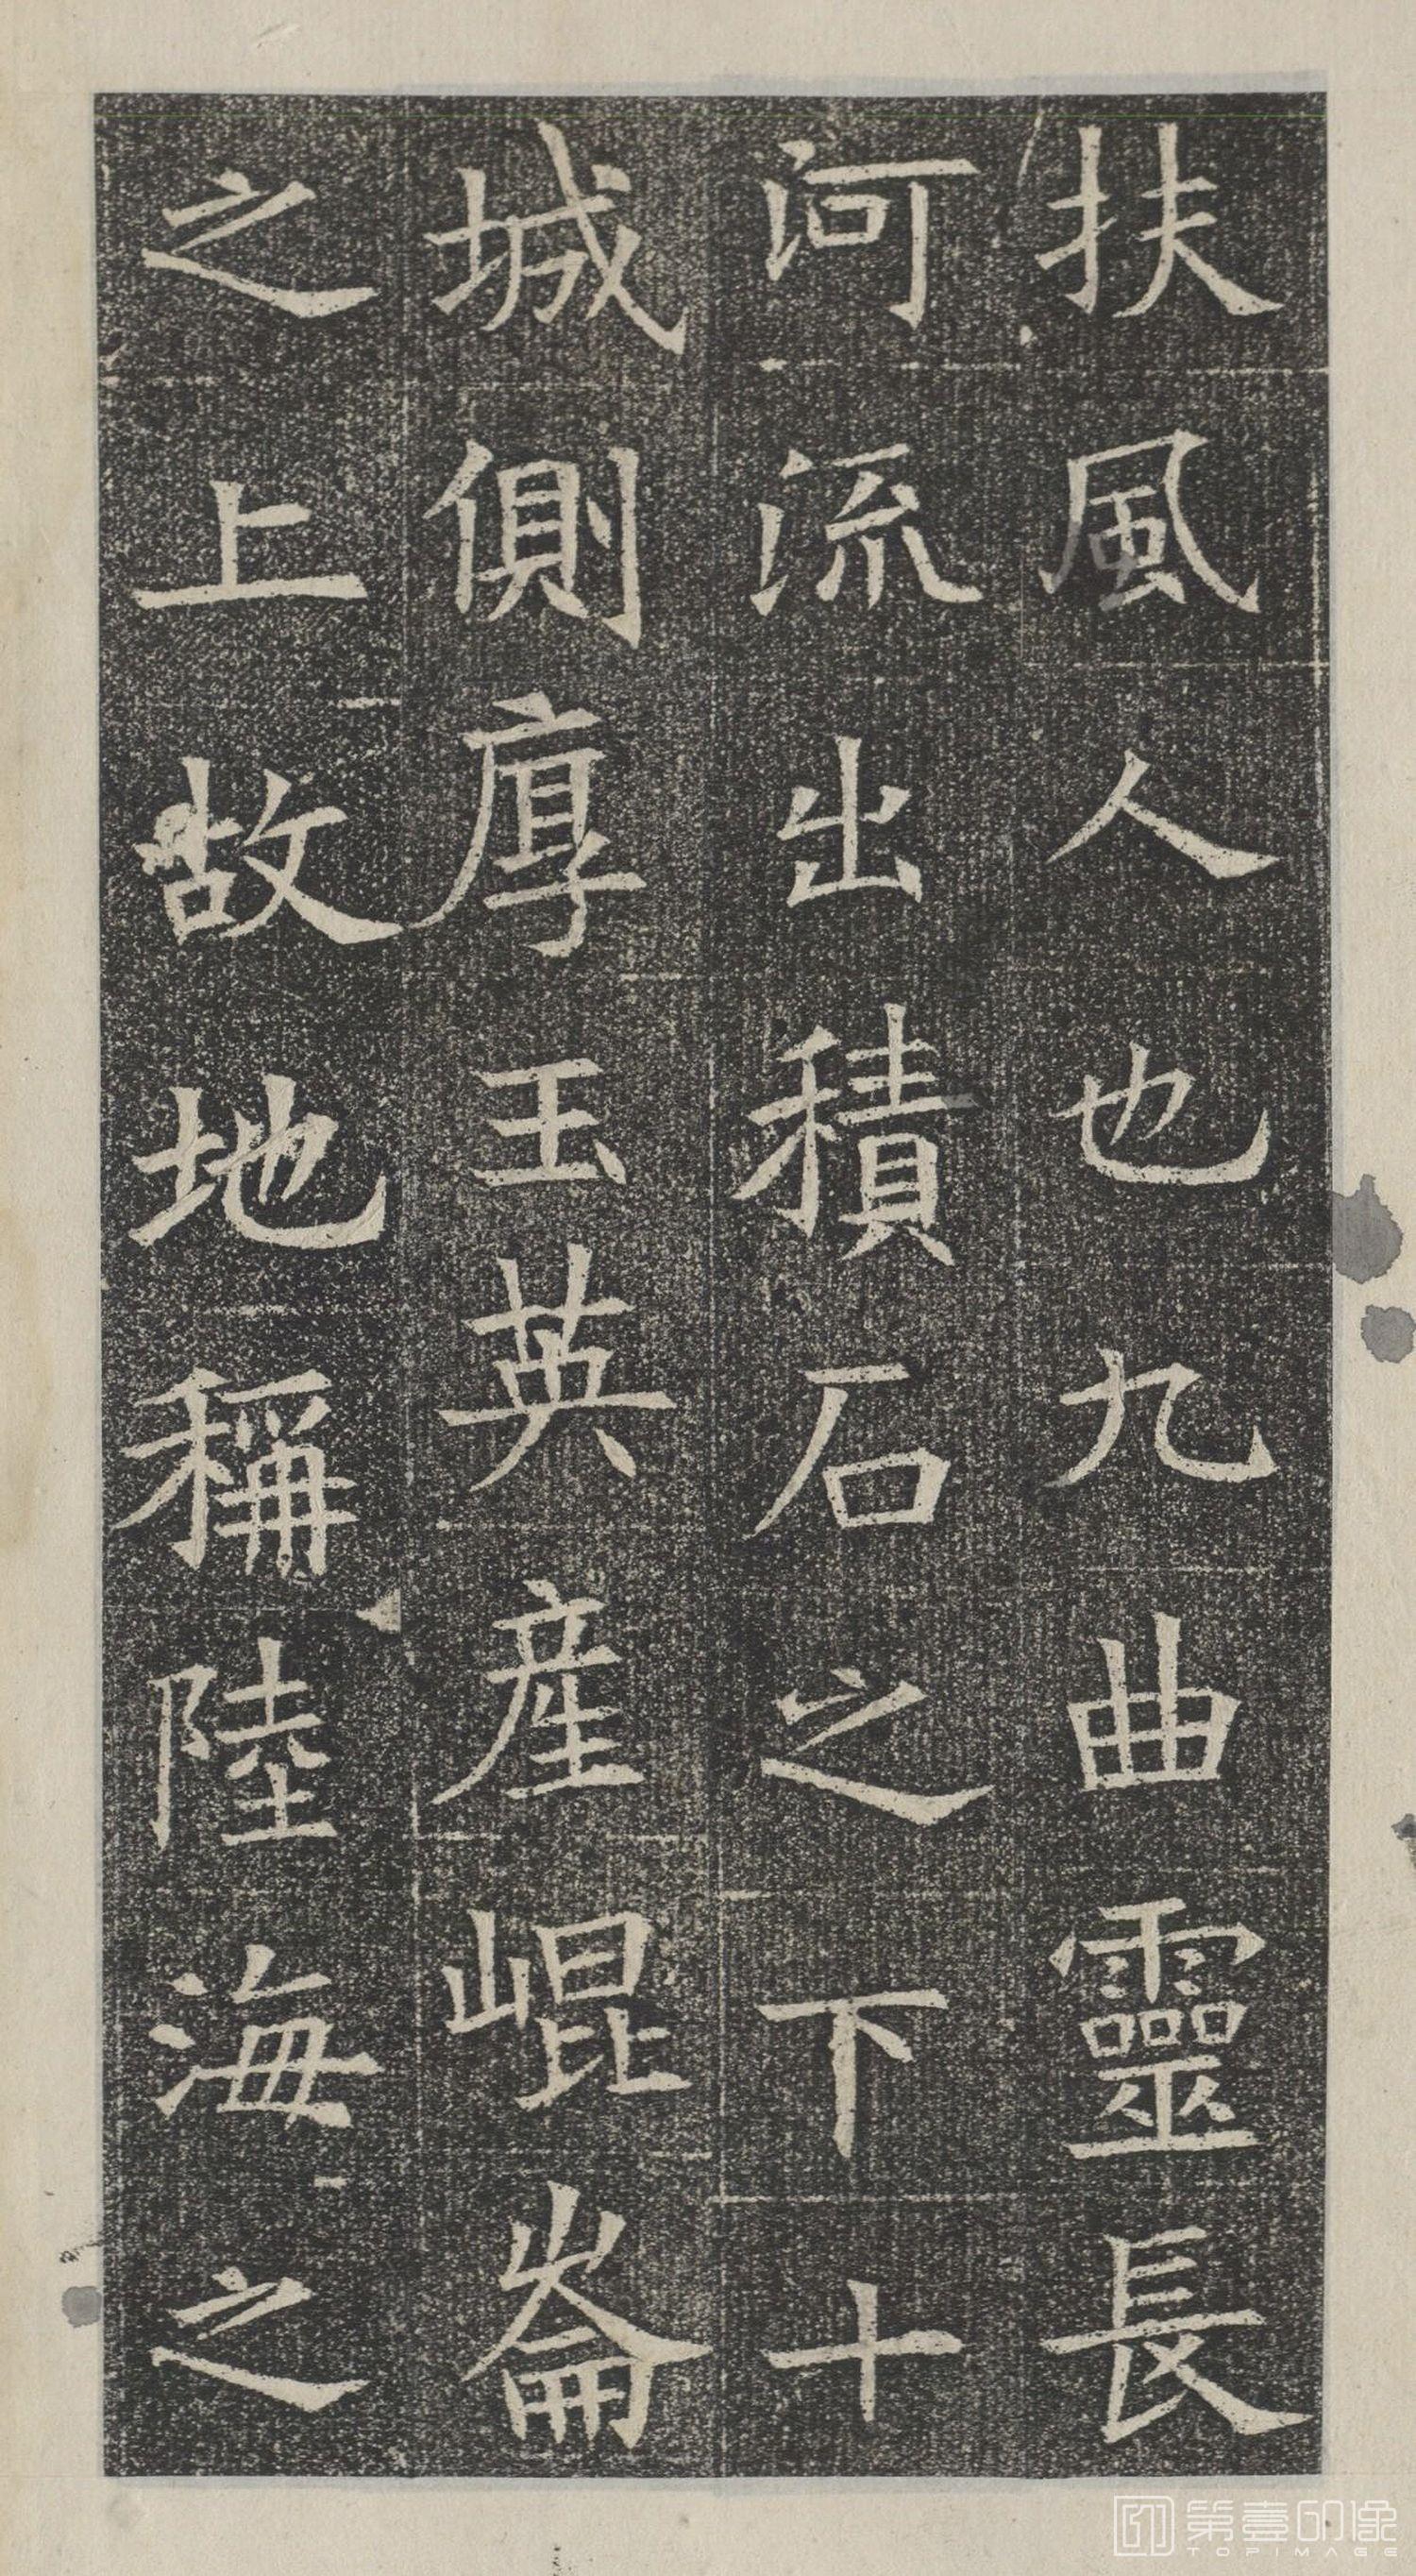 扶風人也九曲靈長
河流出積石之下十
城側厚玉英産崐崘
之上故地稱陸海之
第壹印像
TOPIMAGE